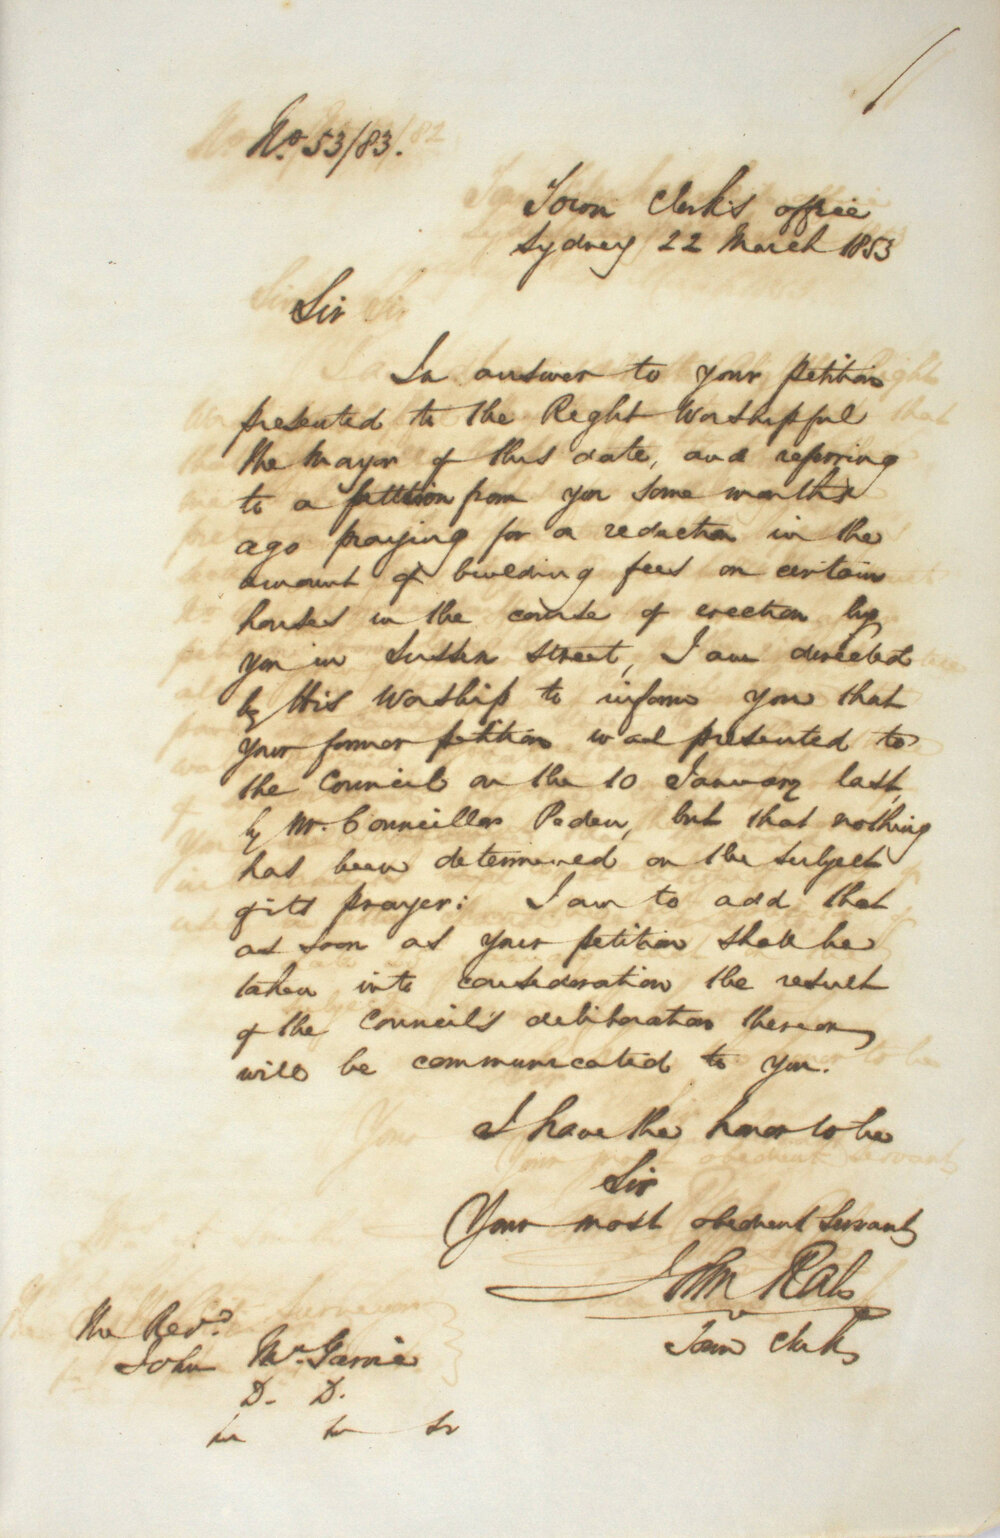 No. 53/83.
Town Clerk's office
Sydney 22 March 1853
Sir
In answer to your petition
presented to the Right Worshipful
the Mayor of this date, and referring
to a petition from you some months
ago praying for a reduction in the
amount of building fees on certain
houses in the course of erection by
you in Sussex Street, I am directed
by His Worship to inform you that
your former petition was presented to
the Council on the 10 January last,
by Mr. Councillor Peden, but that nothing
has been determined on the subject
of its prayer: I am to add that
as soon as your petition shall be
taken into consideration the result
of the Council's deliberation thereon
will be communicated to you.
I have the honor to be
Sir
Your most obedient Servant
John Rae
Town Clerk
The Revd.
John McGarvie
D. D.